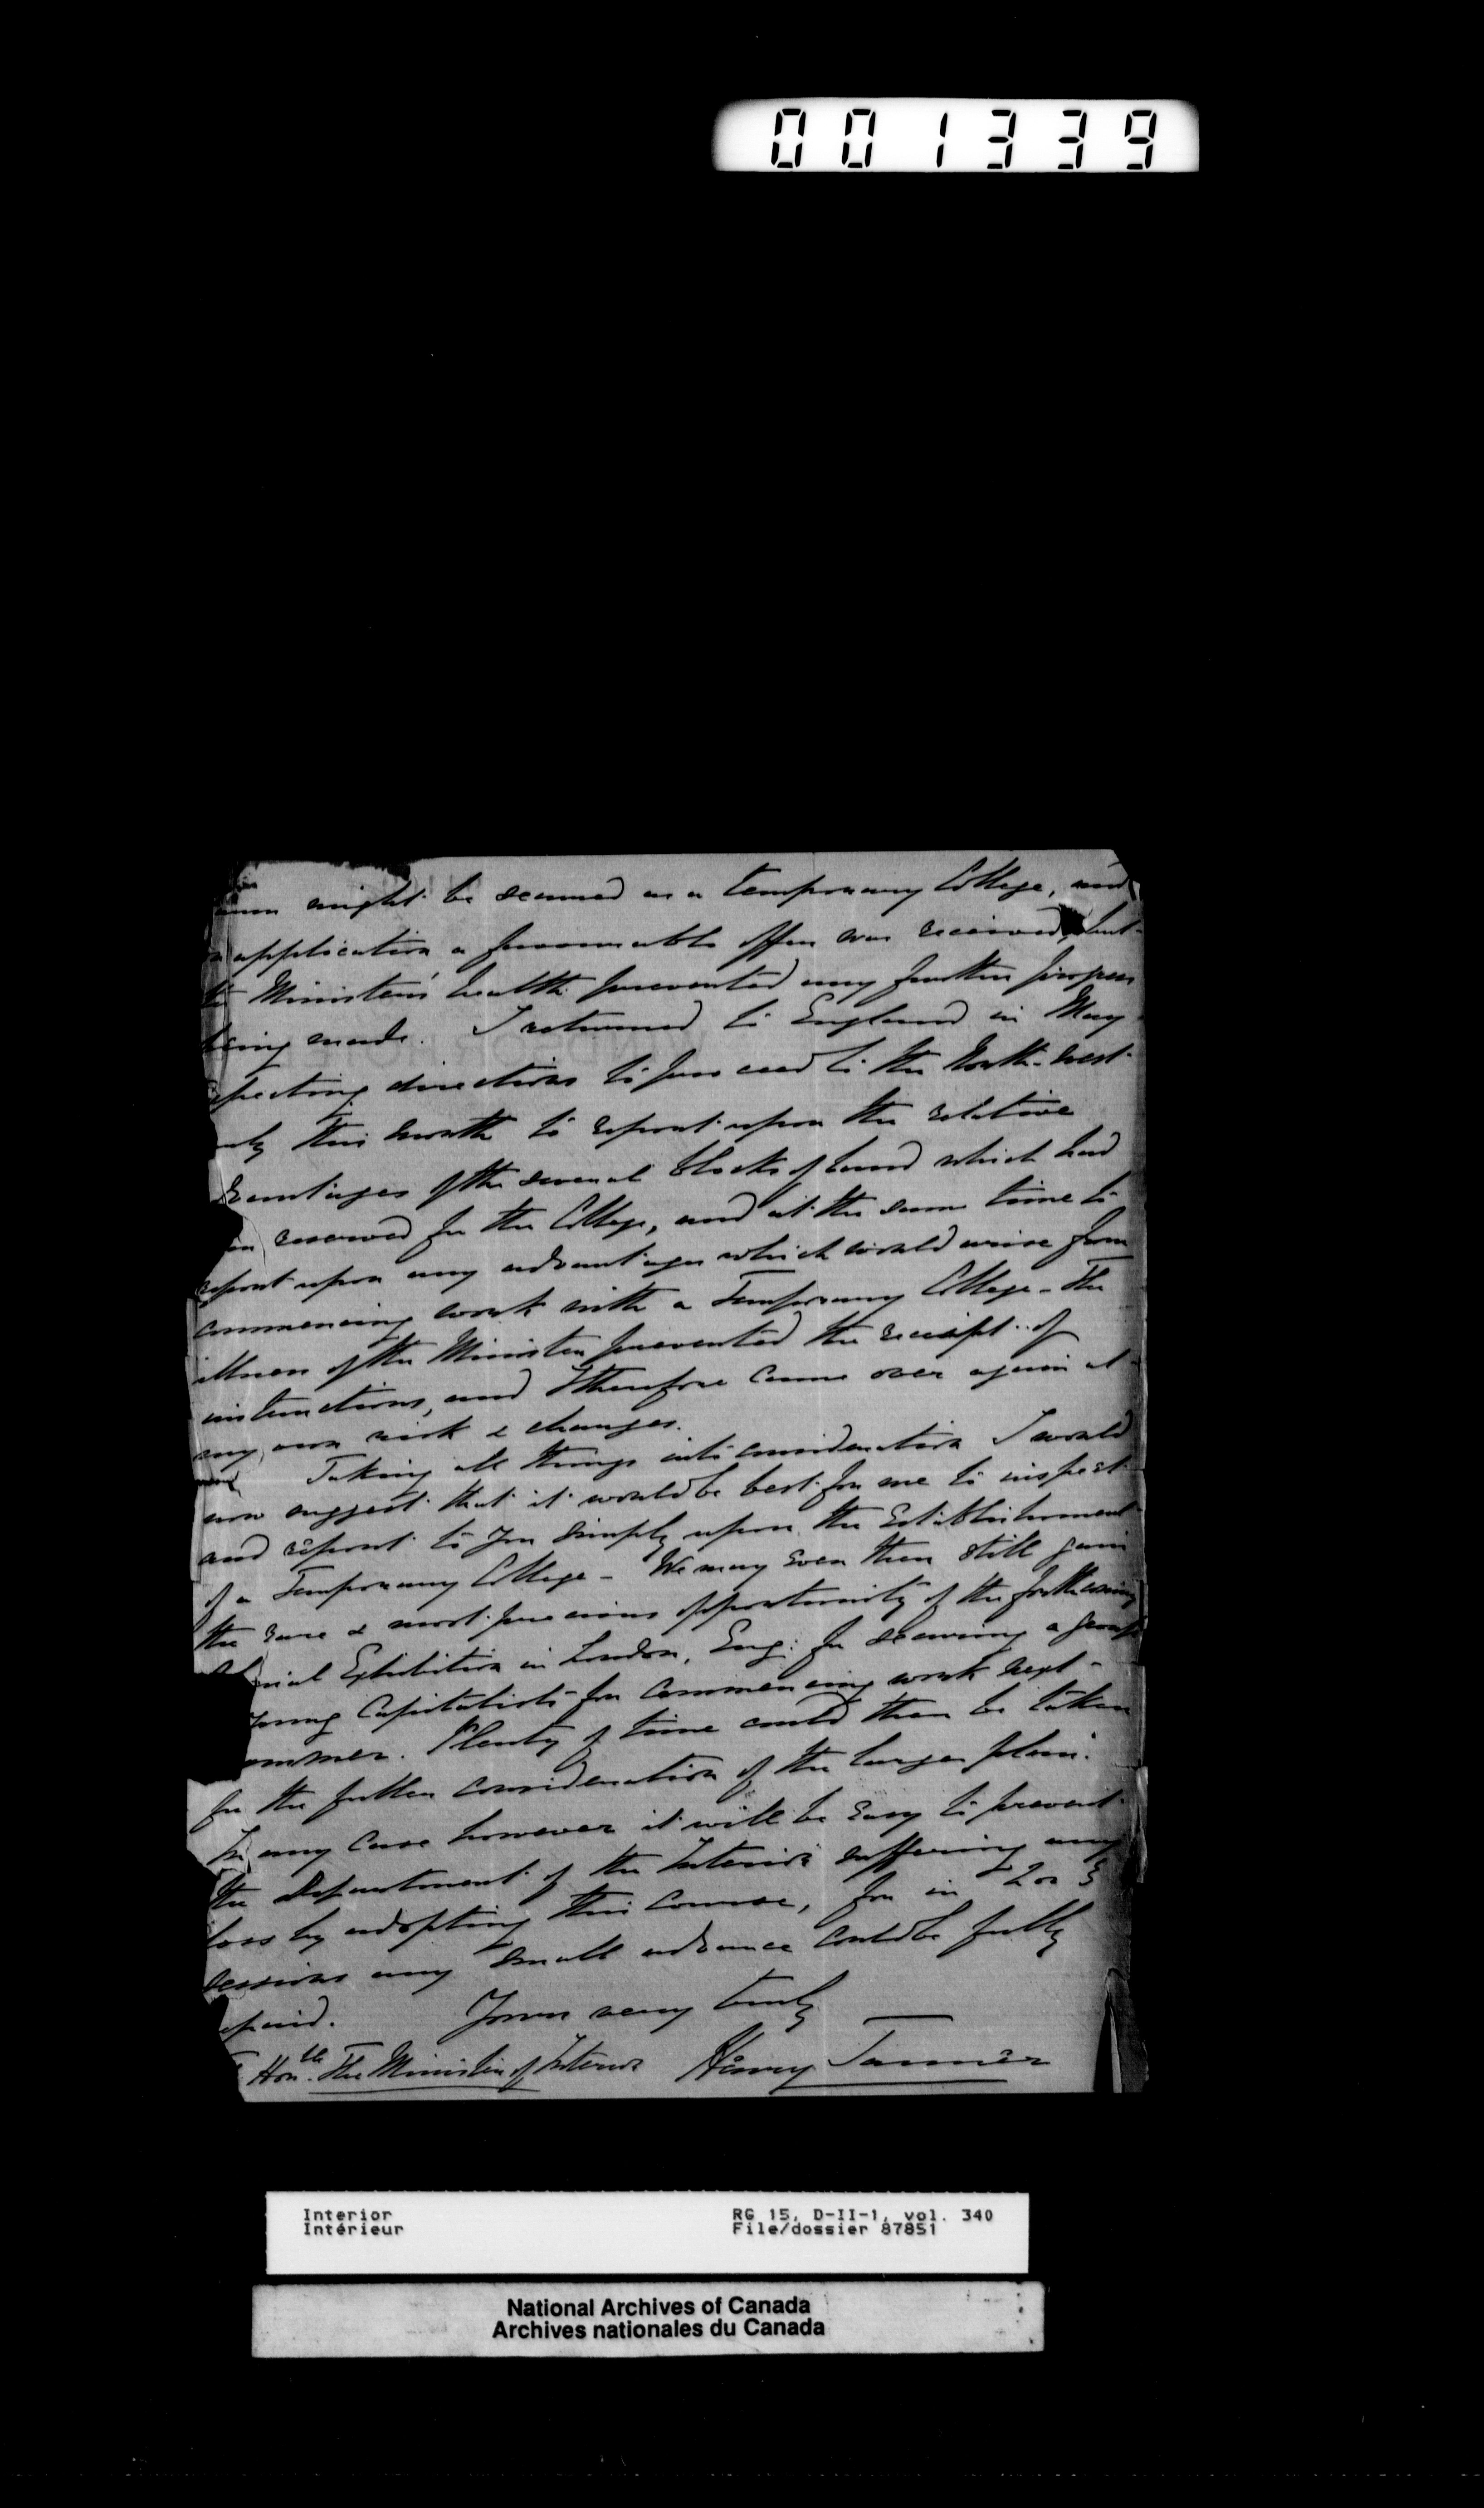 001339
might be secured as a temporary College, and
application a favourable offer was received, but
the Minister's health prevented any further progress
being made. I returned to England in May
expecting directions to proceed to the North-west
early this month to report upon the relative
advantages of the several blocks of land which had
been reserved for the College, and at the same time to
report upon any advantages which would arise from
commencing work with a Temporary College - The
illness of the Minister prevented the receipt of
instructions, and I therefore came over again at
my own risk & charges.
Taking all things into consideration I would
now suggest that it would be best for me to inspect
and report to you simply upon the Establishment
of a Temporary College - We may even then still gain
the rare & most precious opportunity of the forthcoming
Colonial Exhibition in London, Eng: for securing a group
young Capitalists for commencing work next
summer. Plenty of time could then be taken
for the fuller consideration of the larger plan.
In any case however it will be easy to prevent
the Department of the Interior suffering any
loss by adopting this course, for in 2 or 3
sessions any small advance could be fully
repaid. Yours very truly
Honble. The Minister of Interior Henry Tanner
Interior RG 15, D-II-1, vol. 340
Intérieur File/dossier 87851
National Archives of Canada
Archives nationales du Canada